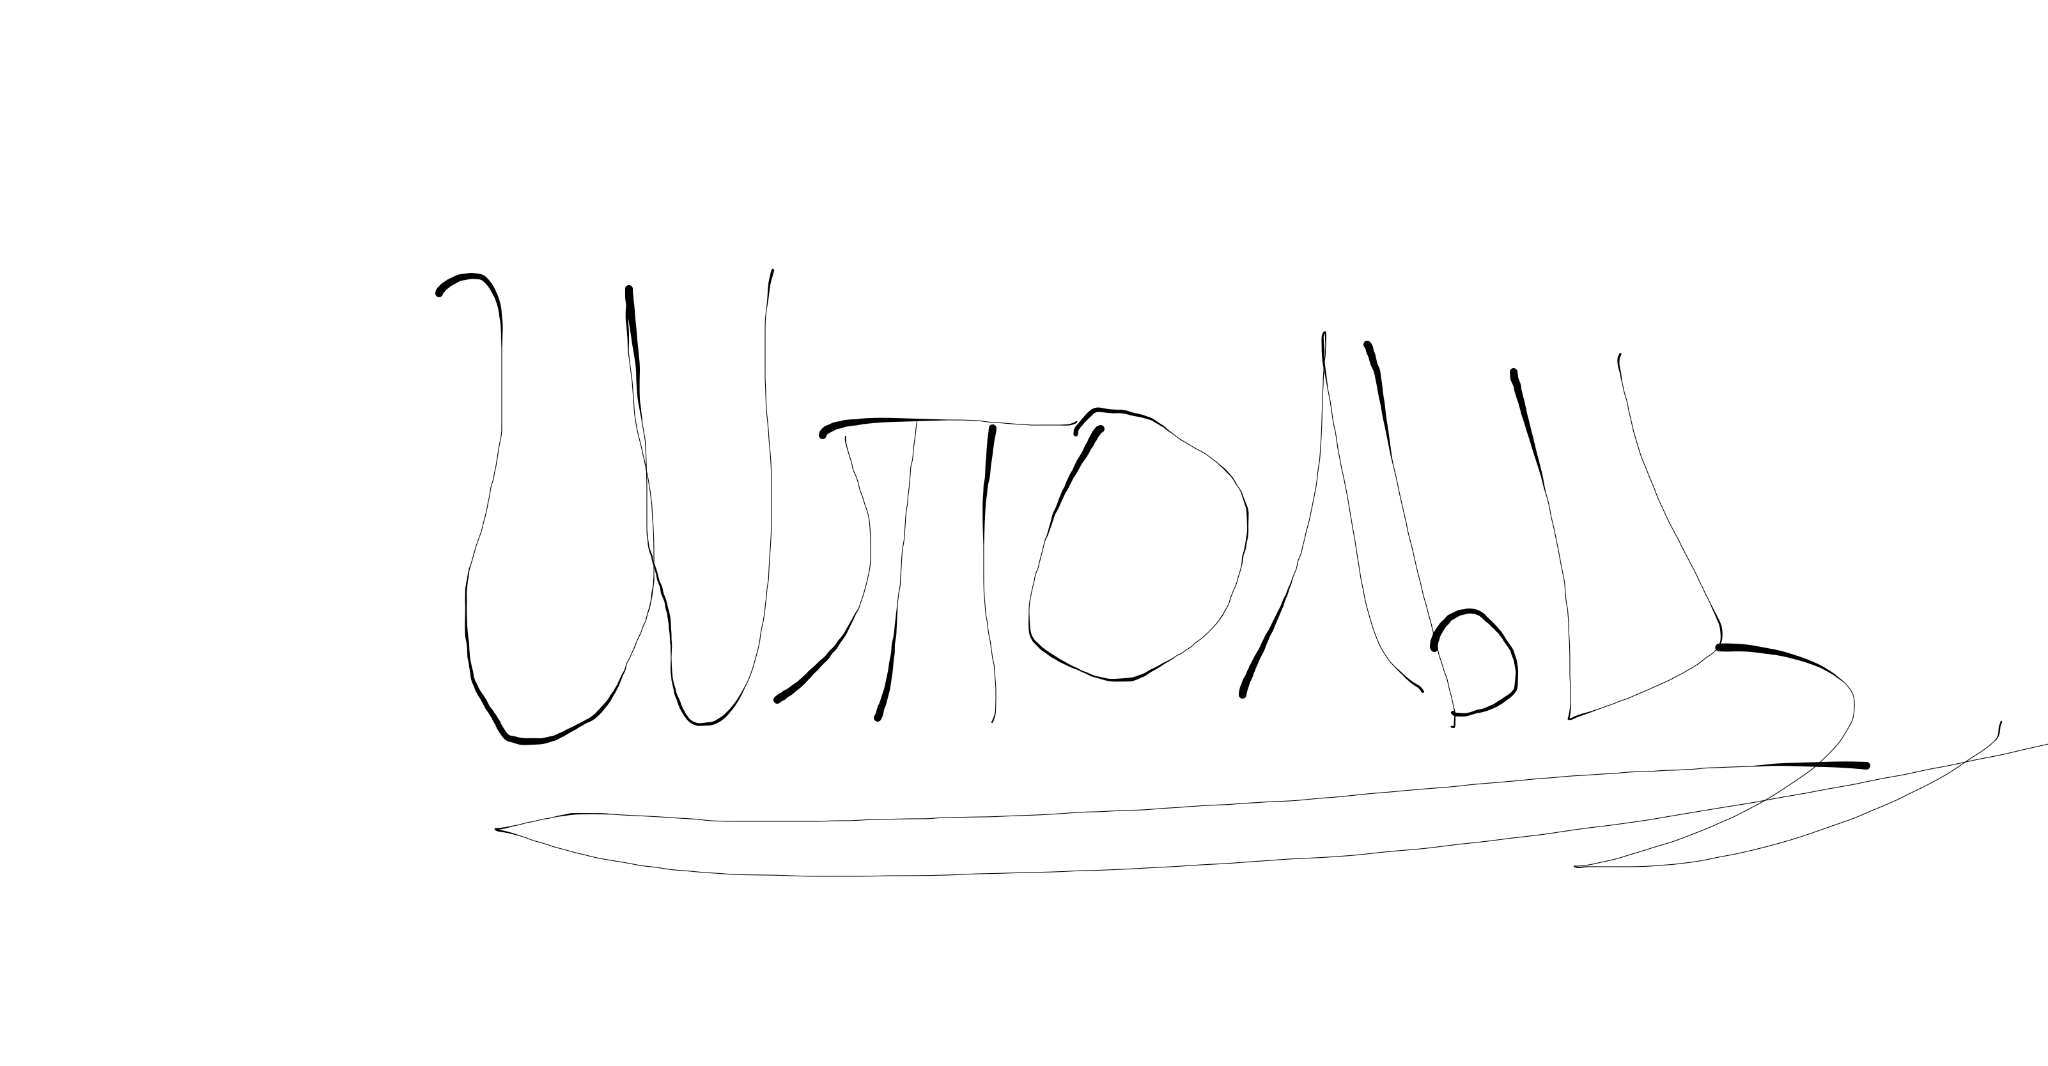 Штольц